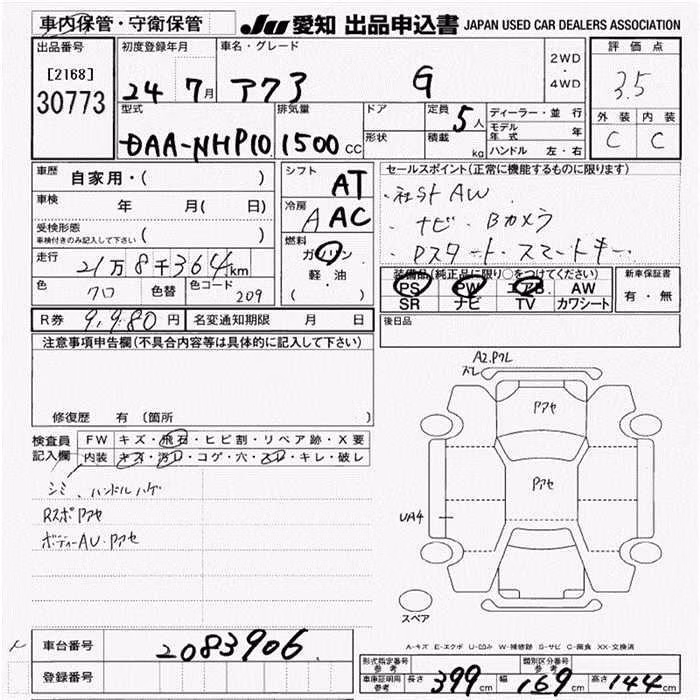 車内保管・守衛保管 JU 愛知 出品申込書 JAPAN USED CAR DEALERS ASSOCIATION
出品番号 初度登録年月 車名・グレード 2WD ・ 4WD 評価点
[2168] 30773 24 7月 アクア G 3.5
型式 排気量 ドア 定員 5人 ディーラー・並 行 外装 内装
DAA-NHP10 1500cc 形状 積載 kg モデル年式 年 C C
ハンドル 左・右
車歴 自家用・( ) シフト AT セールスポイント(正常に機能するものに限ります)
車検 年 月( 日) 冷房 A AC ・社外AW
受検形態 車検付きのみ記入して下さい ( ) ・ナビ・Bカメラ
走行 21万8千364km 燃料 ガソリン ・Pスタート・スマートキー
軽・油 ( )
色 クロ 色替 色コード 209 装備品(純正品に限り○をつけてください) 新車保証書
PS PW エアB AW 有・無
SR ナビ TV カワシート
R券 9,980円 名変通知期限 月 日 後日品
注意事項申告欄(不具合内容等は具体的に記入して下さい)
修復歴 有 〔箇所 〕
検査員記入欄 FW キズ・飛石・ヒビ割・リペア跡・X要
内装 キズ・汚レ・コゲ・穴・スレ・キレ・破レ
シミ、ハンドルハゲ
RスポPアセ
ボディーAU・Pアセ
A2.Pクレ
ズレ
Pアセ
Pアセ
UA4
スペア
A-キズ E-エクボ U-凹み W-補修跡 S-サビ C-腐食 XX-交換済
車台番号 2083906
登録番号
形式指定番号 参考 類別区分番号 参考
車庫証明用 参考 長さ 399cm 幅 169cm 高さ 144cm